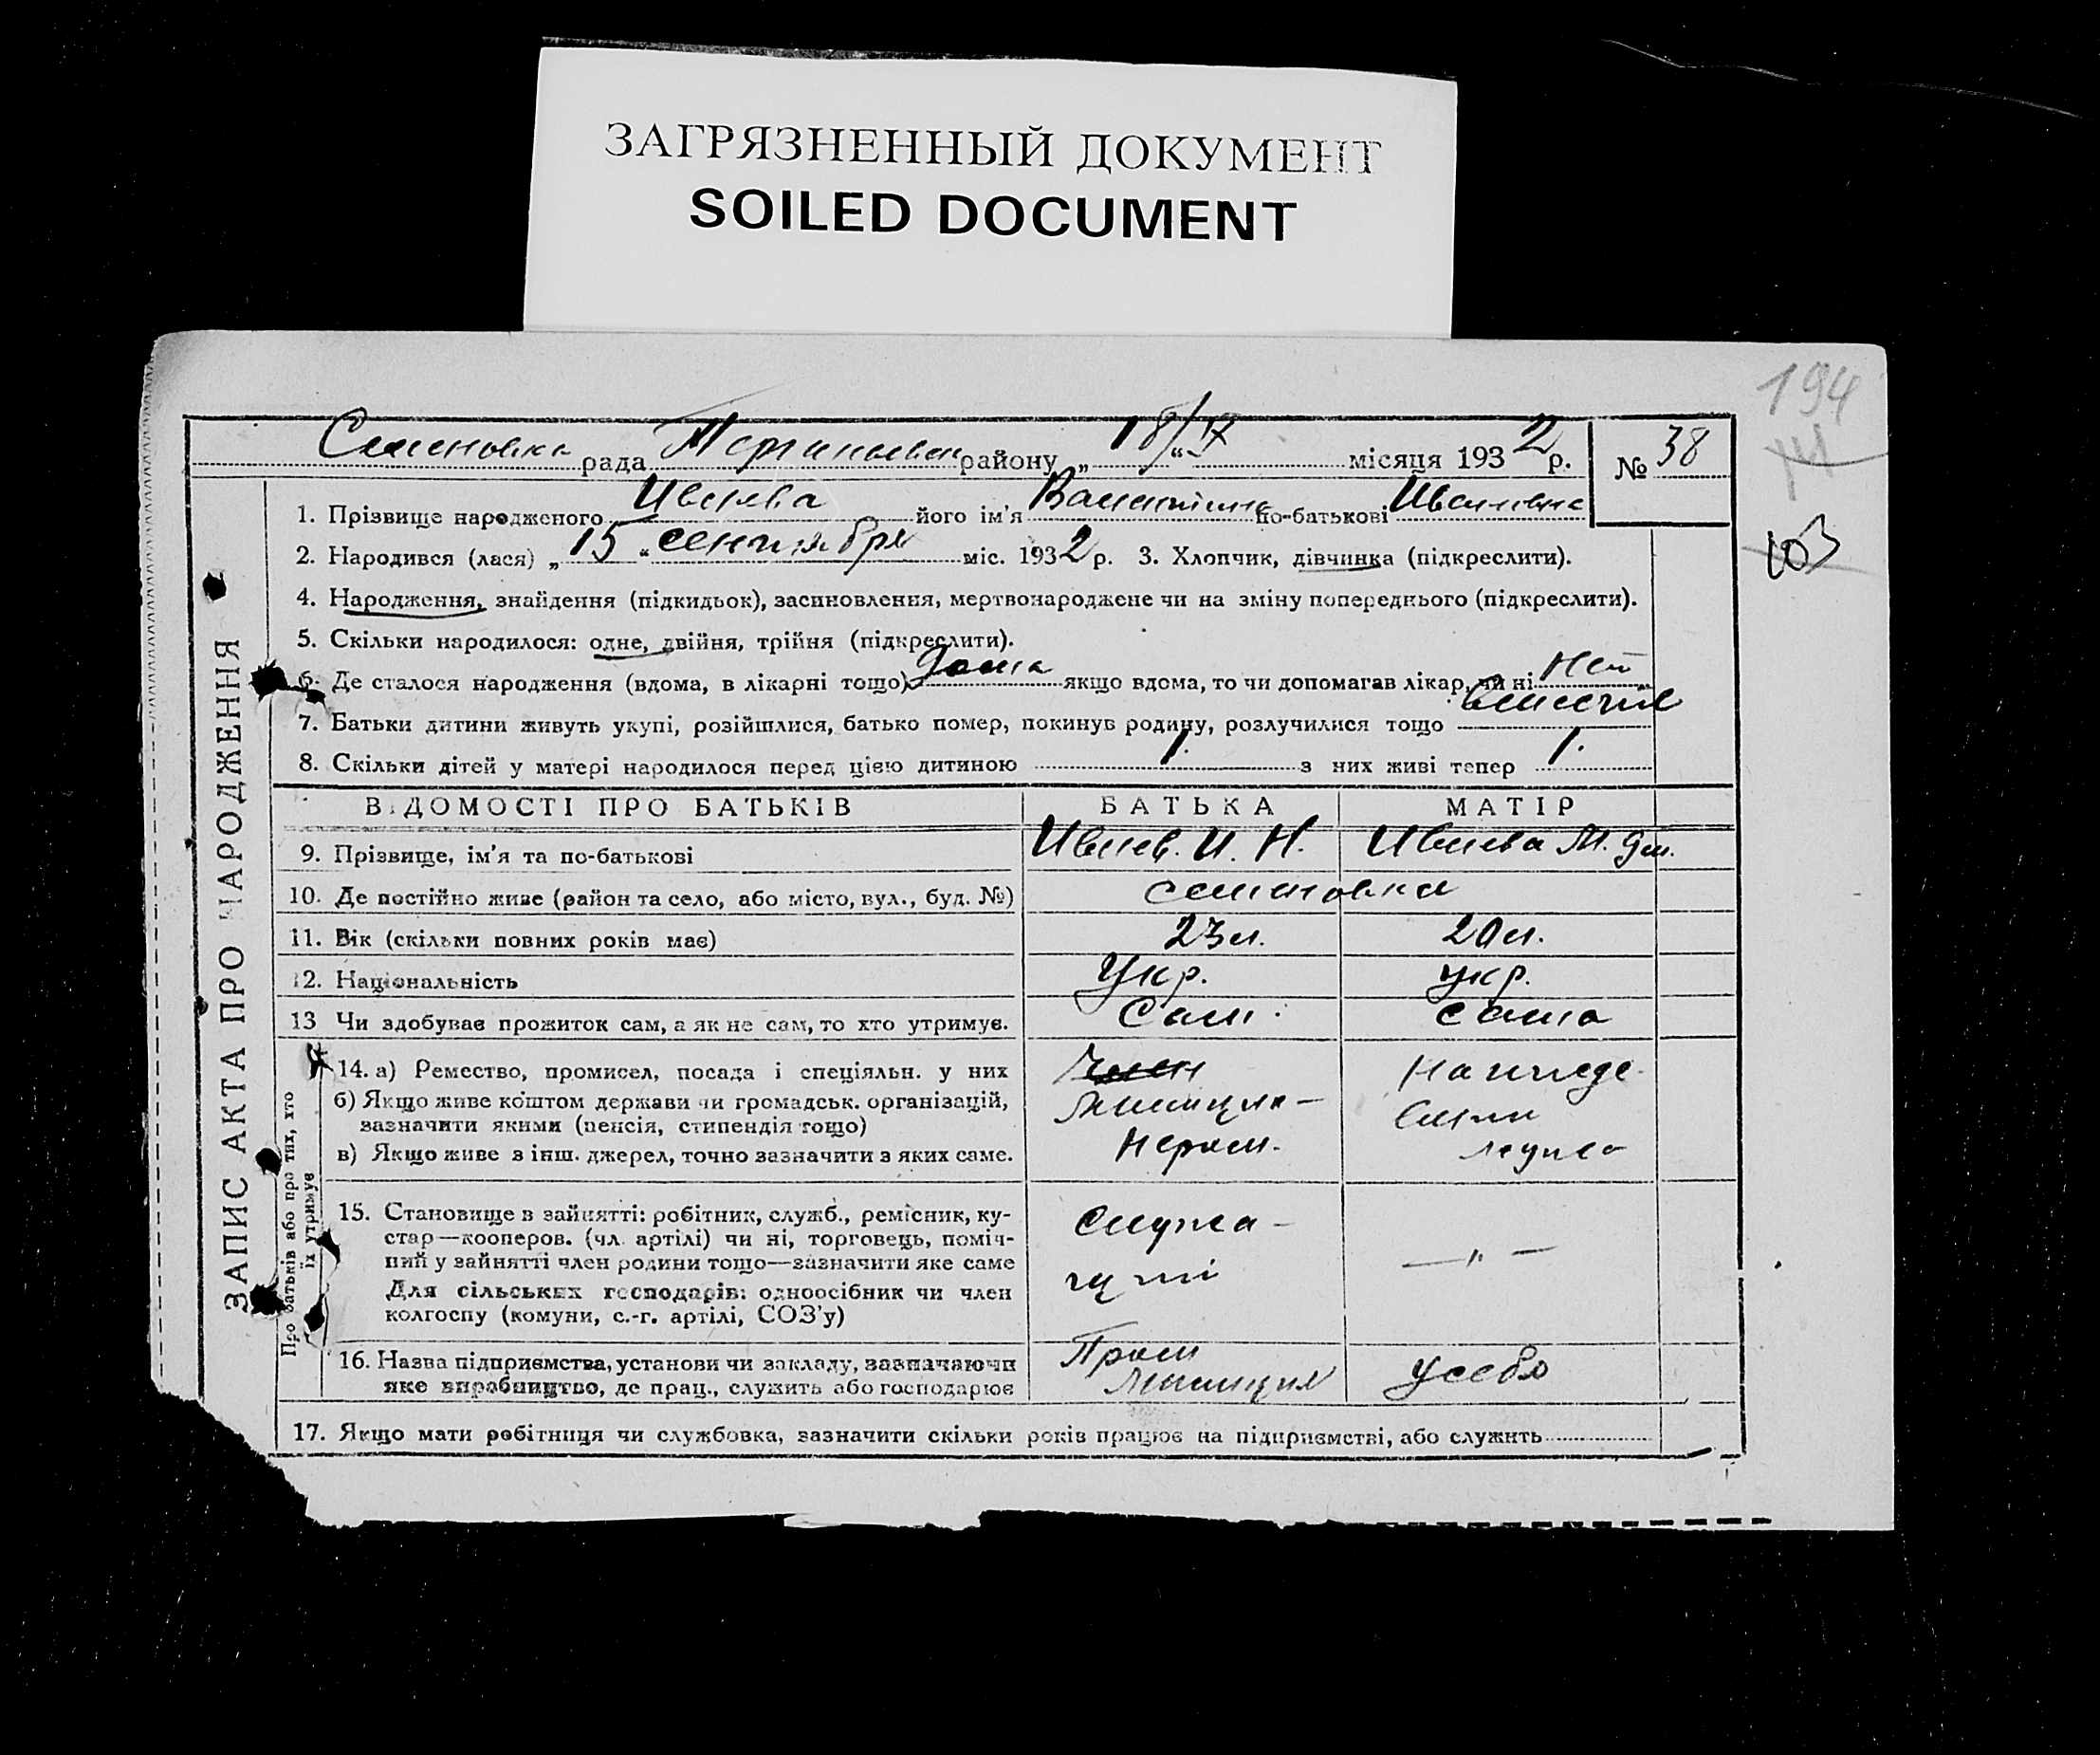 ЗАГРЯЗНЕННЫЙ ДОКУМЕНТ
SOILED DOCUMENT
194
рада району „18/IX“ місяця 1932 р. № 38
103
ЗАПИС АКТА ПРО НАРОДЖЕННЯ
1. Прізвище народженого Ивнева його ім'я Валентина по-батькові Ивановна
2. Народився (лася) „15“ сентября міс. 1932 р. 3. Хлопчик, дівчинка (підкреслити).
4. Народження, знайдення (підкидьок), засиновлення, мертвонароджене чи на зміну попереднього (підкреслити).
5. Скільки народилося: одне, двійня, трійня (підкреслити).
6. Де сталося народження (вдома, в лікарні тощо) дома якщо вдома, то чи допомагав лікар, чи ні нет
7. Батьки дитини живуть укупі, розійшлися, батько помер, покинув родину, розлучилися тощо вместе
8. Скільки дітей у матері народилося перед цією дитиною 1. з них живі тепер 1.
ВІДОМОСТІ ПРО БАТЬКІВ БАТЬКА МАТІР
9. Прізвище, ім'я та по-батькові Ивнев. И. Н. Ивнева М. Дм.
10. Де постійно живе (район та село, або місто, вул., буд. №) Семеновка
11. Вік (скільки повних років має) 23 л. 20 л.
12. Національність Укр. укр.
13 Чи здобуває прожиток сам, а як не сам, то хто утримує. Сам сама
Про батьків або про тих, хто
їх утримує
14. а) Ремество, промисел, посада і спеціяльн. у них
б) Якщо живе коштом держави чи громадськ. організацій,
зазначити якими (пенсія, стипендія тощо)
в) Якщо живе з інш. джерел, точно зазначити з яких саме.
Милицио-
нером.
На иждe-
мужа
15. Становище в зайнятті: робітник, служб., ремісник, ку-
стар—кооперов. (чл. артілі) чи ні, торговець, поміч-
ний у зайнятті член родини тощо—зазначити яке саме
Для сільських господарів: одноосібник чи член
колгоспу (комуни, с.-г. артілі, СОЗ'у)
Служа-
щий
—"—
16. Назва підприємства, установи чи закладу, зазначаючи
яке виробництво, де прац., служить або господарює
Милиция
у себя
17. Якщо мати робітниця чи службовка, зазначити скільки років працює на підприємстві, або служить